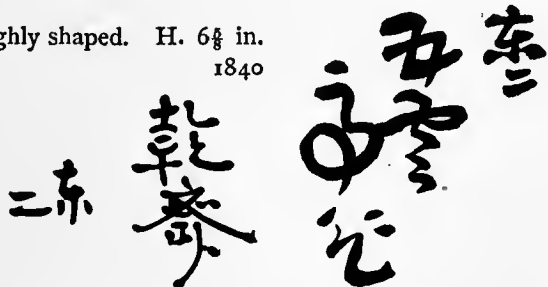 ghly shaped. H. 6⅝ in.
1840
东二
五雲
乾齋
二东